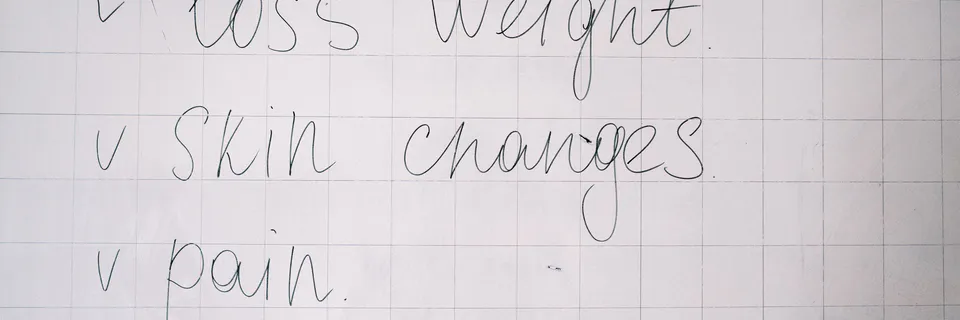 v loss weight.
v skin changes.
v pain.